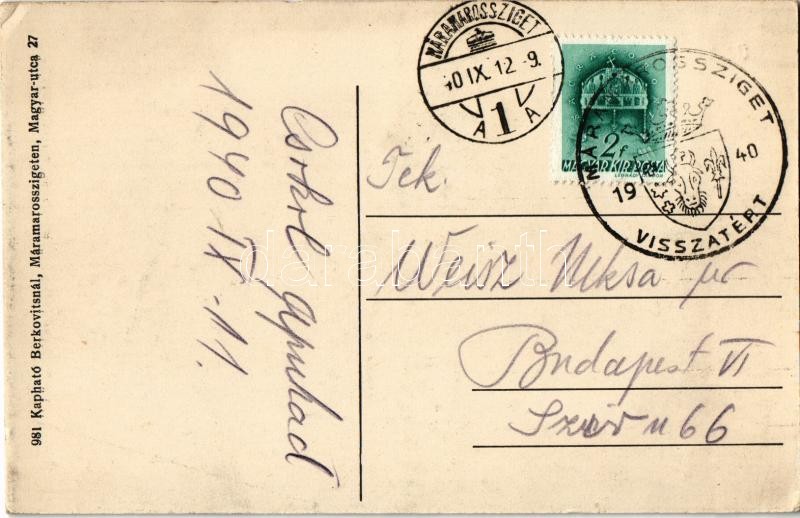 981 Kapható Berkovitsnál, Máramarosszigeten, Magyar-utca 27
Csókol Apukád
1940 IX. 11.
MÁRAMAROSSZIGET
40 IX. 12 -9.
A 1 A
2f
MAGYAR KIR. POSTA
MÁRAMAROSSZIGET
19 40
VISSZATÉRT
Tek.
Weisz Miksa úr
Budapest VI
Szív u 66
darabanth